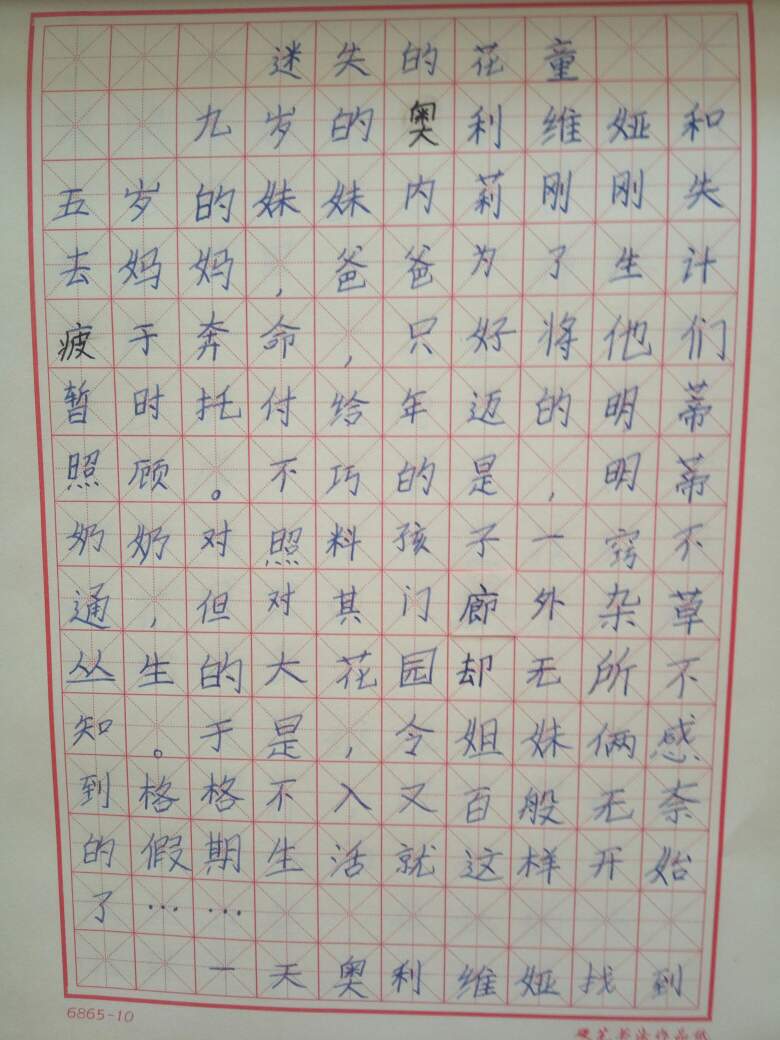 迷失的花童
九岁的奥利维娅和
五岁的妹妹内莉刚刚失
去妈妈,爸爸为了生计
疲于奔命,只好将他们
暂时托付给年迈的明蒂
照顾。不巧的是,明蒂
奶奶对照料孩子一窍不
通,但对其门廊外杂草
丛生的大花园却无所不
知。于是,令姐妹俩感
到格格不入又百般无奈
的假期生活就这样开始
了……
一天奥利维娅找到
6865-10
硬笔书法作品纸